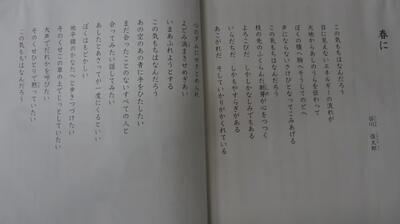 春に
谷川 俊太郎
この気もちはなんだろう
目に見えないエネルギーの流れが
大地からあしのうらを伝わって
ぼくの腹へ胸へそうしてのどへ
声にならないさけびとなってこみあげる
この気もちはなんだろう
枝の先のふくらんだ新芽が心をつつく
よろこびだ しかしかなしみでもある
いらだちだ しかもやすらぎがある
あこがれだ そしていかりがかくれている
心のダムにせきとめられ
よどみ渦まきせめぎあい
いまあふれようとする
この気もちはなんだろう
あの空のあの青に手をひたしたい
まだ会ったことのないすべての人と
会ってみたい話してみたい
あしたとあさってが一度にくるといい
ぼくはもどかしい
地平線のかなたへと歩きつづけたい
そのくせこの草の上でじっとしていたい
大声でだれかを呼びたい
そのくせひとりで黙っていたい
この気もちはなんだろう